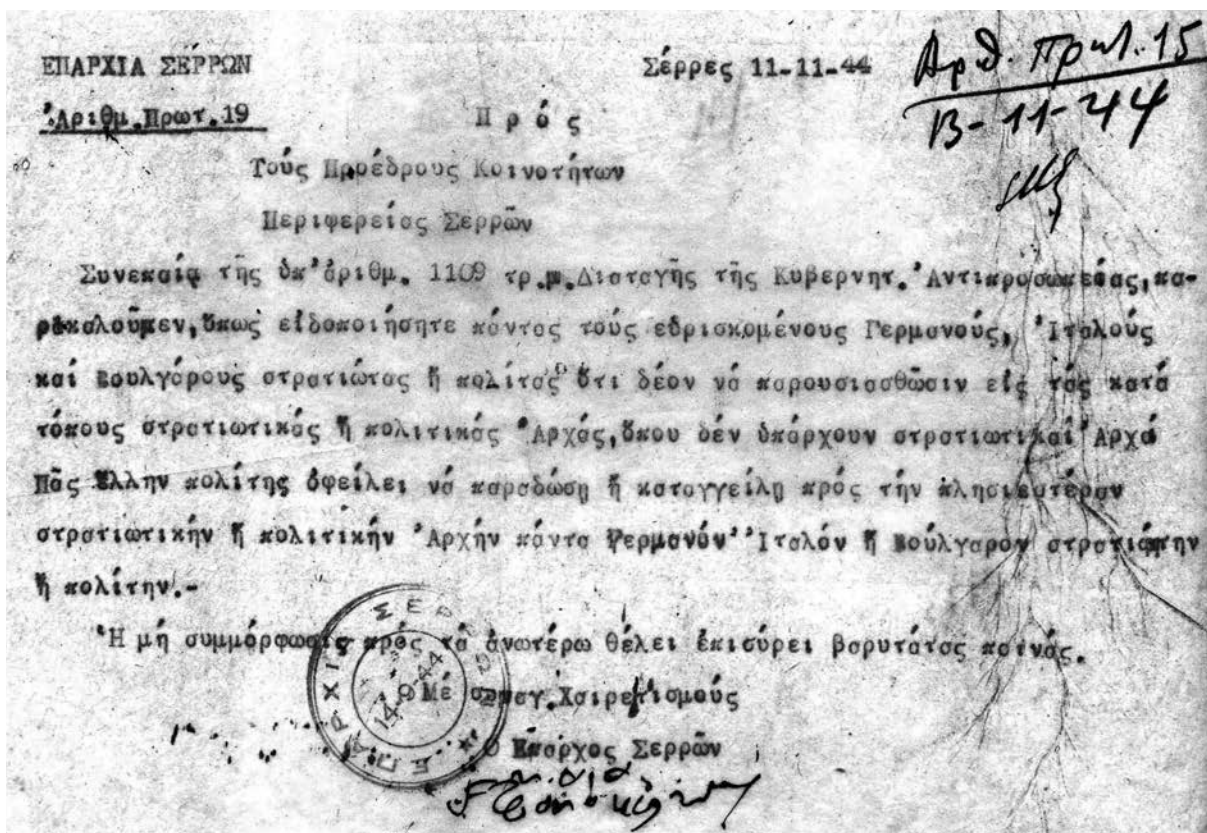 ΕΠΑΡΧΙΑ ΣΕΡΡΩΝ
Σέρρες 11-11-44
Ἀριθμ.Πρωτ.19
Ἀριθ. Πρωτ. 15
13-11-44
Π ρ ό ς
Τούς Προέδρους Κοινοτήτων
Περιφερείας Σερρῶν
Συνεπείᾳ τῆς ὑπ'ἀριθμ. 1109 τρ.μ.Διαταγῆς τῆς Κυβερνητ. Ἀντιπροσωπείας, πα-
ρακαλοῦμεν,ὅπως εἰδοποιήσητε πάντας τούς εὑρισκομένους Γερμανούς, Ἰταλούς
καί Βουλγάρους στρατιώτας ἤ πολίτας ὅτι δέον νά παρουσιασθῶσιν εἰς τάς κατά
τόπους στρατιωτικάς ἤ πολιτικάς Ἀρχάς,ὅπου δέν ὑπάρχουν στρατιωτικαί Ἀρχα
Πᾶς Ἕλλην πολίτης ὀφείλει νά παραδώσῃ ἤ καταγγείλῃ πρός τήν πλησιεστέραν
στρατιωτικήν ἤ πολιτικήν Ἀρχήν πάντα Γερμανόν''Ἰταλόν ἤ Βούλγαρον στρατιώτην
ἤ πολίτην.-
Ἡ μή συμμόρφωσις πρός τά ἀνωτέρω θέλει ἐπισύρει βαρυτάτας ποινάς.
Μέ συναγ.Χαιρετισμούς
Ὁ Ἔπαρχος Σερρῶν
ΕΠΑΡΧΙΑ ΣΕΡΡΩΝ